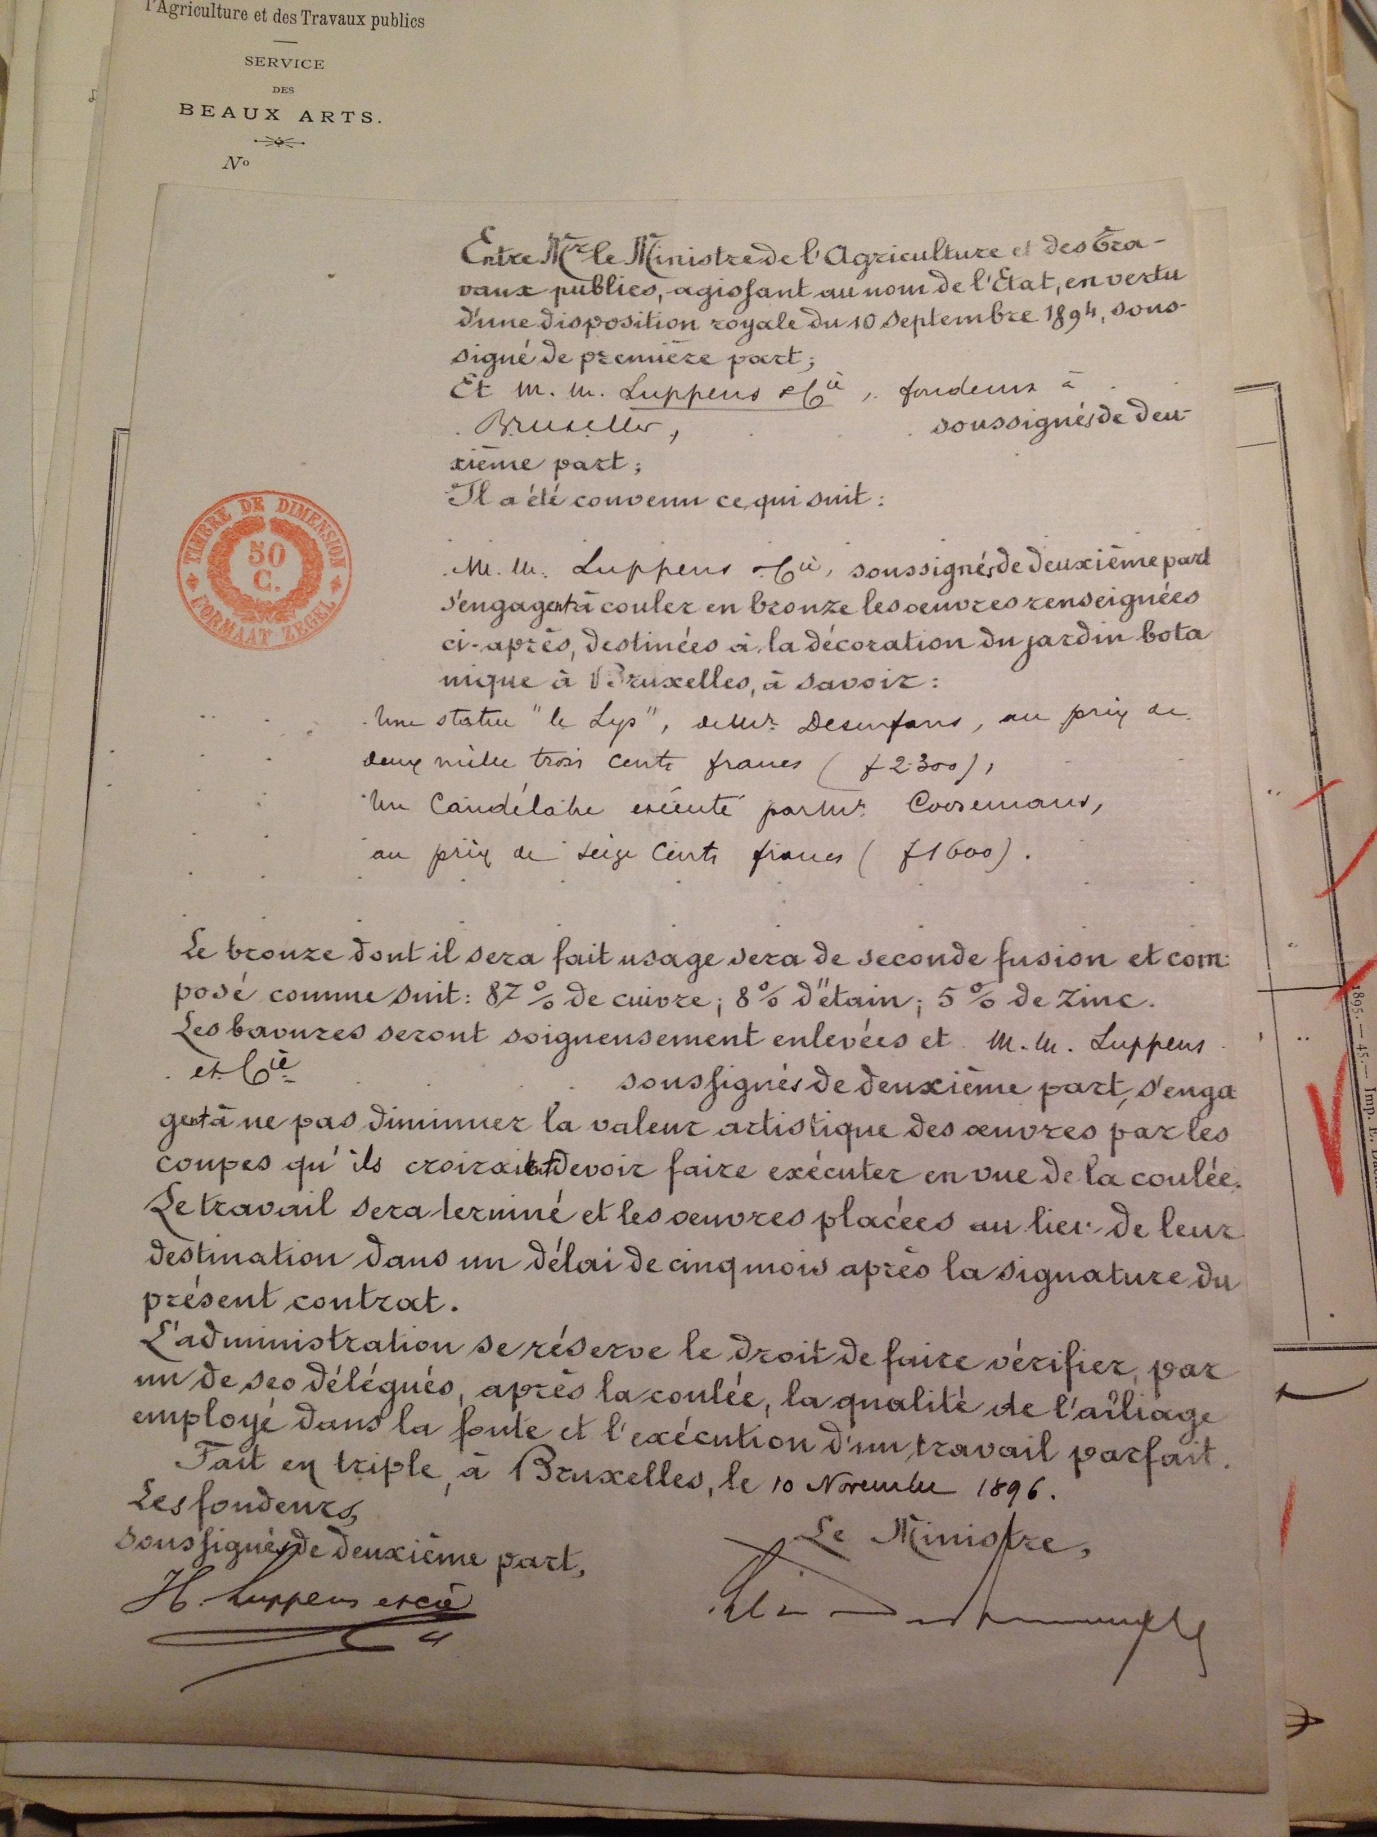 l'Agriculture et des Travaux publics
SERVICE
DES
BEAUX ARTS.
No
Entre Mr le Ministre de l'Agriculture et des Tra-
vaux publics, agissant au nom de l'Etat, en vertu
d'une disposition royale du 10 Septembre 1894, sous-
signé de première part;
Et M. M. Luppens & Cie, fondeurs à
Bruxelles, soussignés de deu-
xième part;
Il a été convenu ce qui suit:
TIMBRE DE DIMENSION
50
C.
FORMAAT ZEGEL
M. M. Luppens & Cie, soussignés de deuxième part
s'engagent à couler en bronze les œuvres renseignées
ci-après, destinées à la décoration du jardin bota
nique à Bruxelles, à savoir:
Une statue "le Lys", de Mr. Desenfans, au prix de
deux mille trois cents francs (f 2300),
Un Candélabre exécuté par Mr. Coosemans,
au prix de seize cents francs (f 1600).
Le bronze dont il sera fait usage sera de seconde fusion et com-
posé comme suit: 87 % de cuivre; 8 % d'étain; 5 % de zinc.
Les bavures seront soigneusement enlevées et M. M. Luppens
et Cie soussignés de deuxième part, s'enga
gent à ne pas diminuer la valeur artistique des œuvres par les
coupes qu'ils croiraient devoir faire exécuter en vue de la coulée.
Le travail sera terminé et les œuvres placées au lieu de leur
destination dans un délai de cinq mois après la signature du
présent contrat.
L'administration se réserve le droit de faire vérifier, par
un de ses délégués, après la coulée, la qualité de l'alliage
employé dans la fonte et l'exécution d'un travail parfait.
Fait en triple, à Bruxelles, le 10 Novembre 1896.
Les fondeurs,
soussignés de deuxième part,
Le Ministre,
H. Luppens et Cie
1895. — 45. — Imp. E.